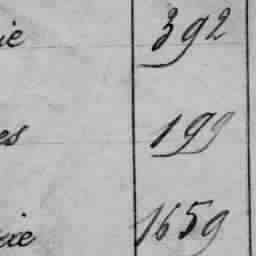 ie 392
es 199
xie 1659